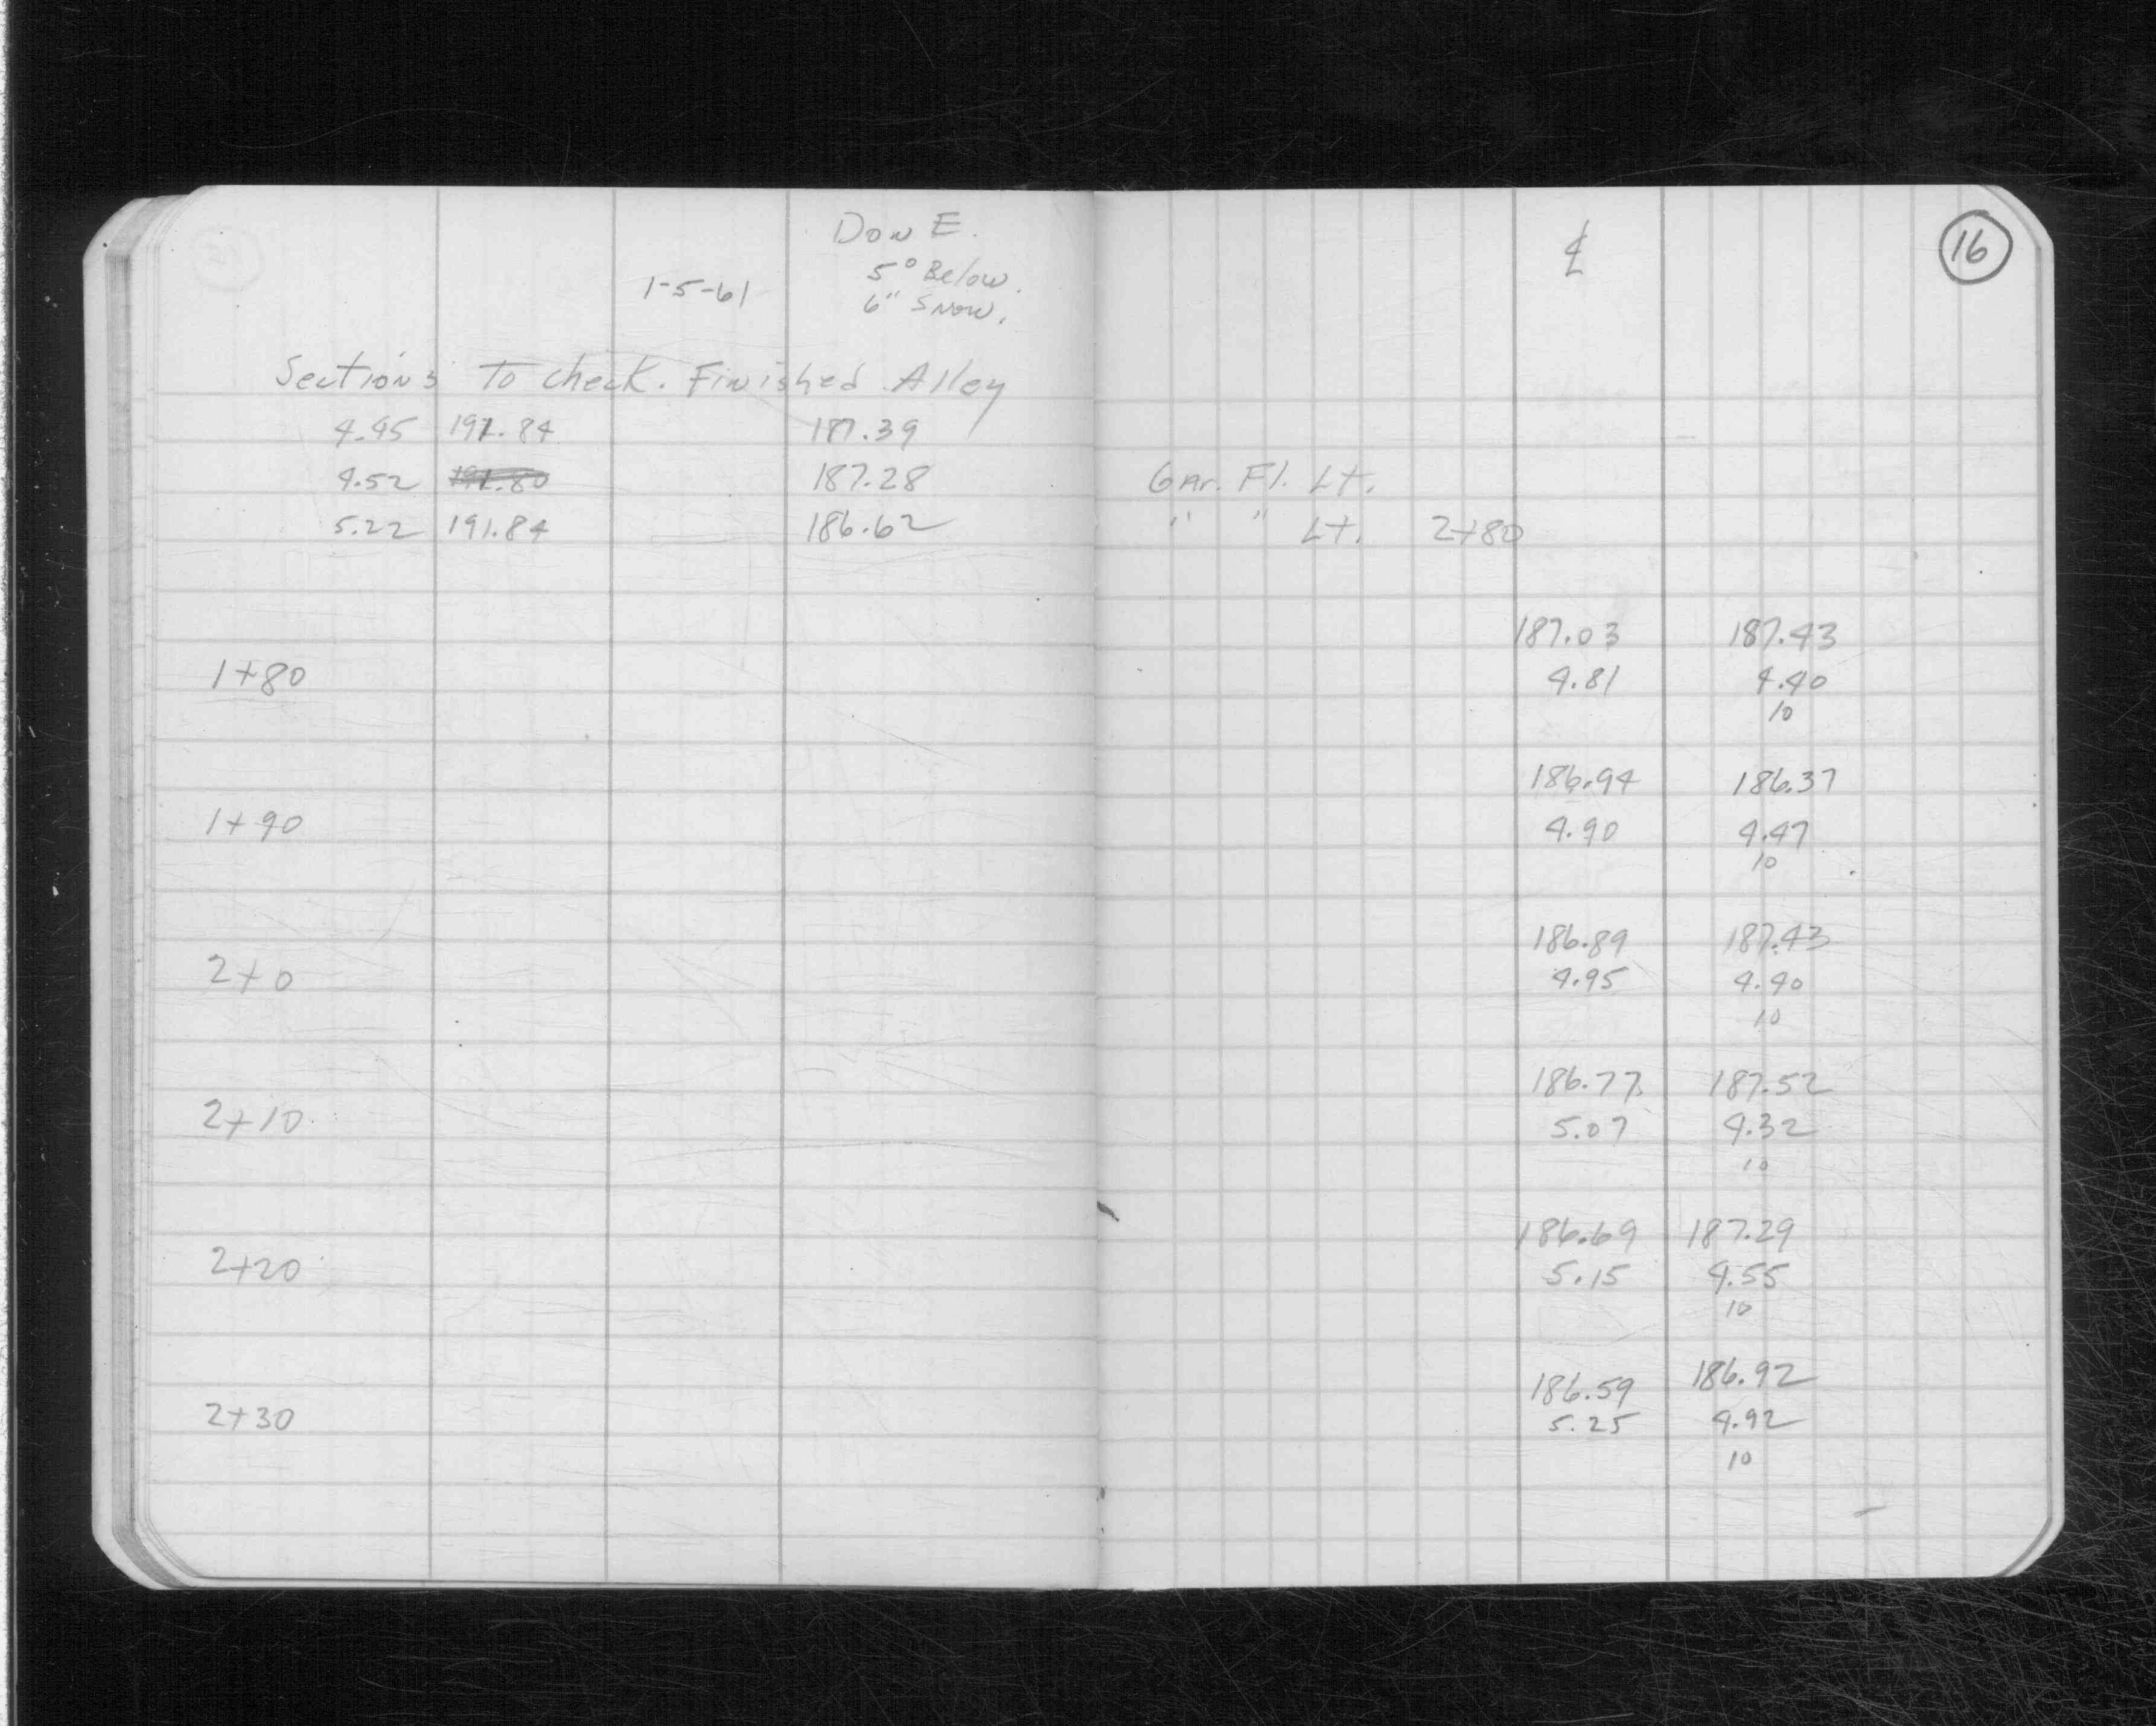 Don E. ℄ 16
5° Below.
1-5-61 6" Snow.
Sections to check. Finished Alley
4.45 191.84 187.39
4.52 191.80 187.28 Gar. Fl. Lt.
5.22 191.84 186.62 " " Lt. 2+80
187.03 187.43
1+80 4.81 4.40
10
186.94 186.37
1+90 4.90 4.47
10
186.89 187.43
2+0 4.95 4.40
10
186.77 187.52
2+10 5.07 4.32
10
186.69 187.29
2+20 5.15 4.55
10
186.59 186.92
2+30 5.25 4.92
10